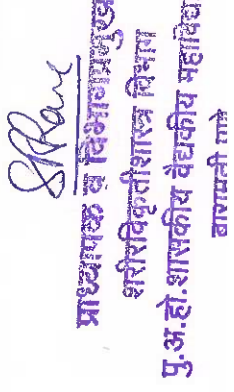 SRRane
प्राध्यापक व विभागप्रमुख
शरीरविकृतीशास्त्र विभाग
पु.अ.हो.शासकीय वैद्यकीय महावि
बारामती